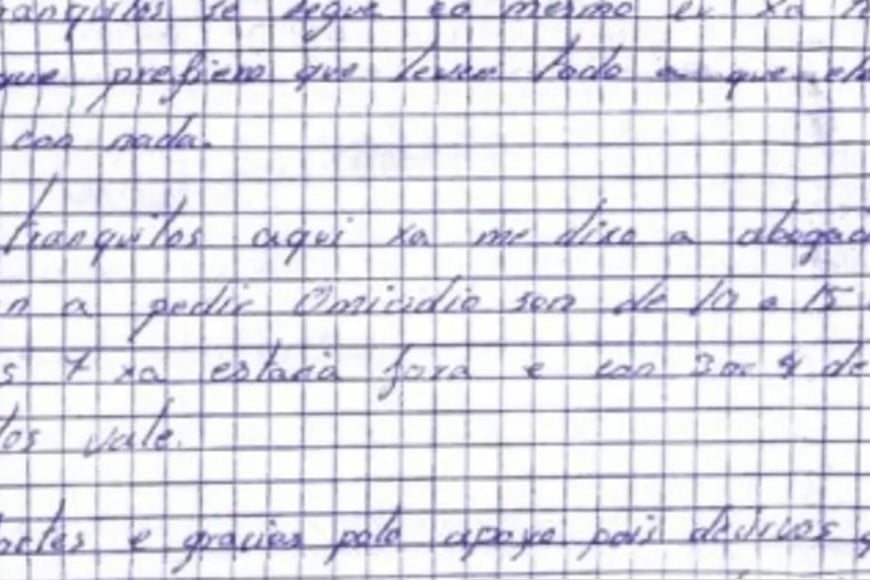 tranquilos se segue eo mesmo eu xa
que prefiero que leven todo a que
con nada.
tranquilos aqui xa me dixo a abogad
n a pedir Omicidio son de 10 a 15
s 7 xa estaria fora e con 3 ou 4 de
tos vale.
ortes e gracias polo apoyo pois deciros q